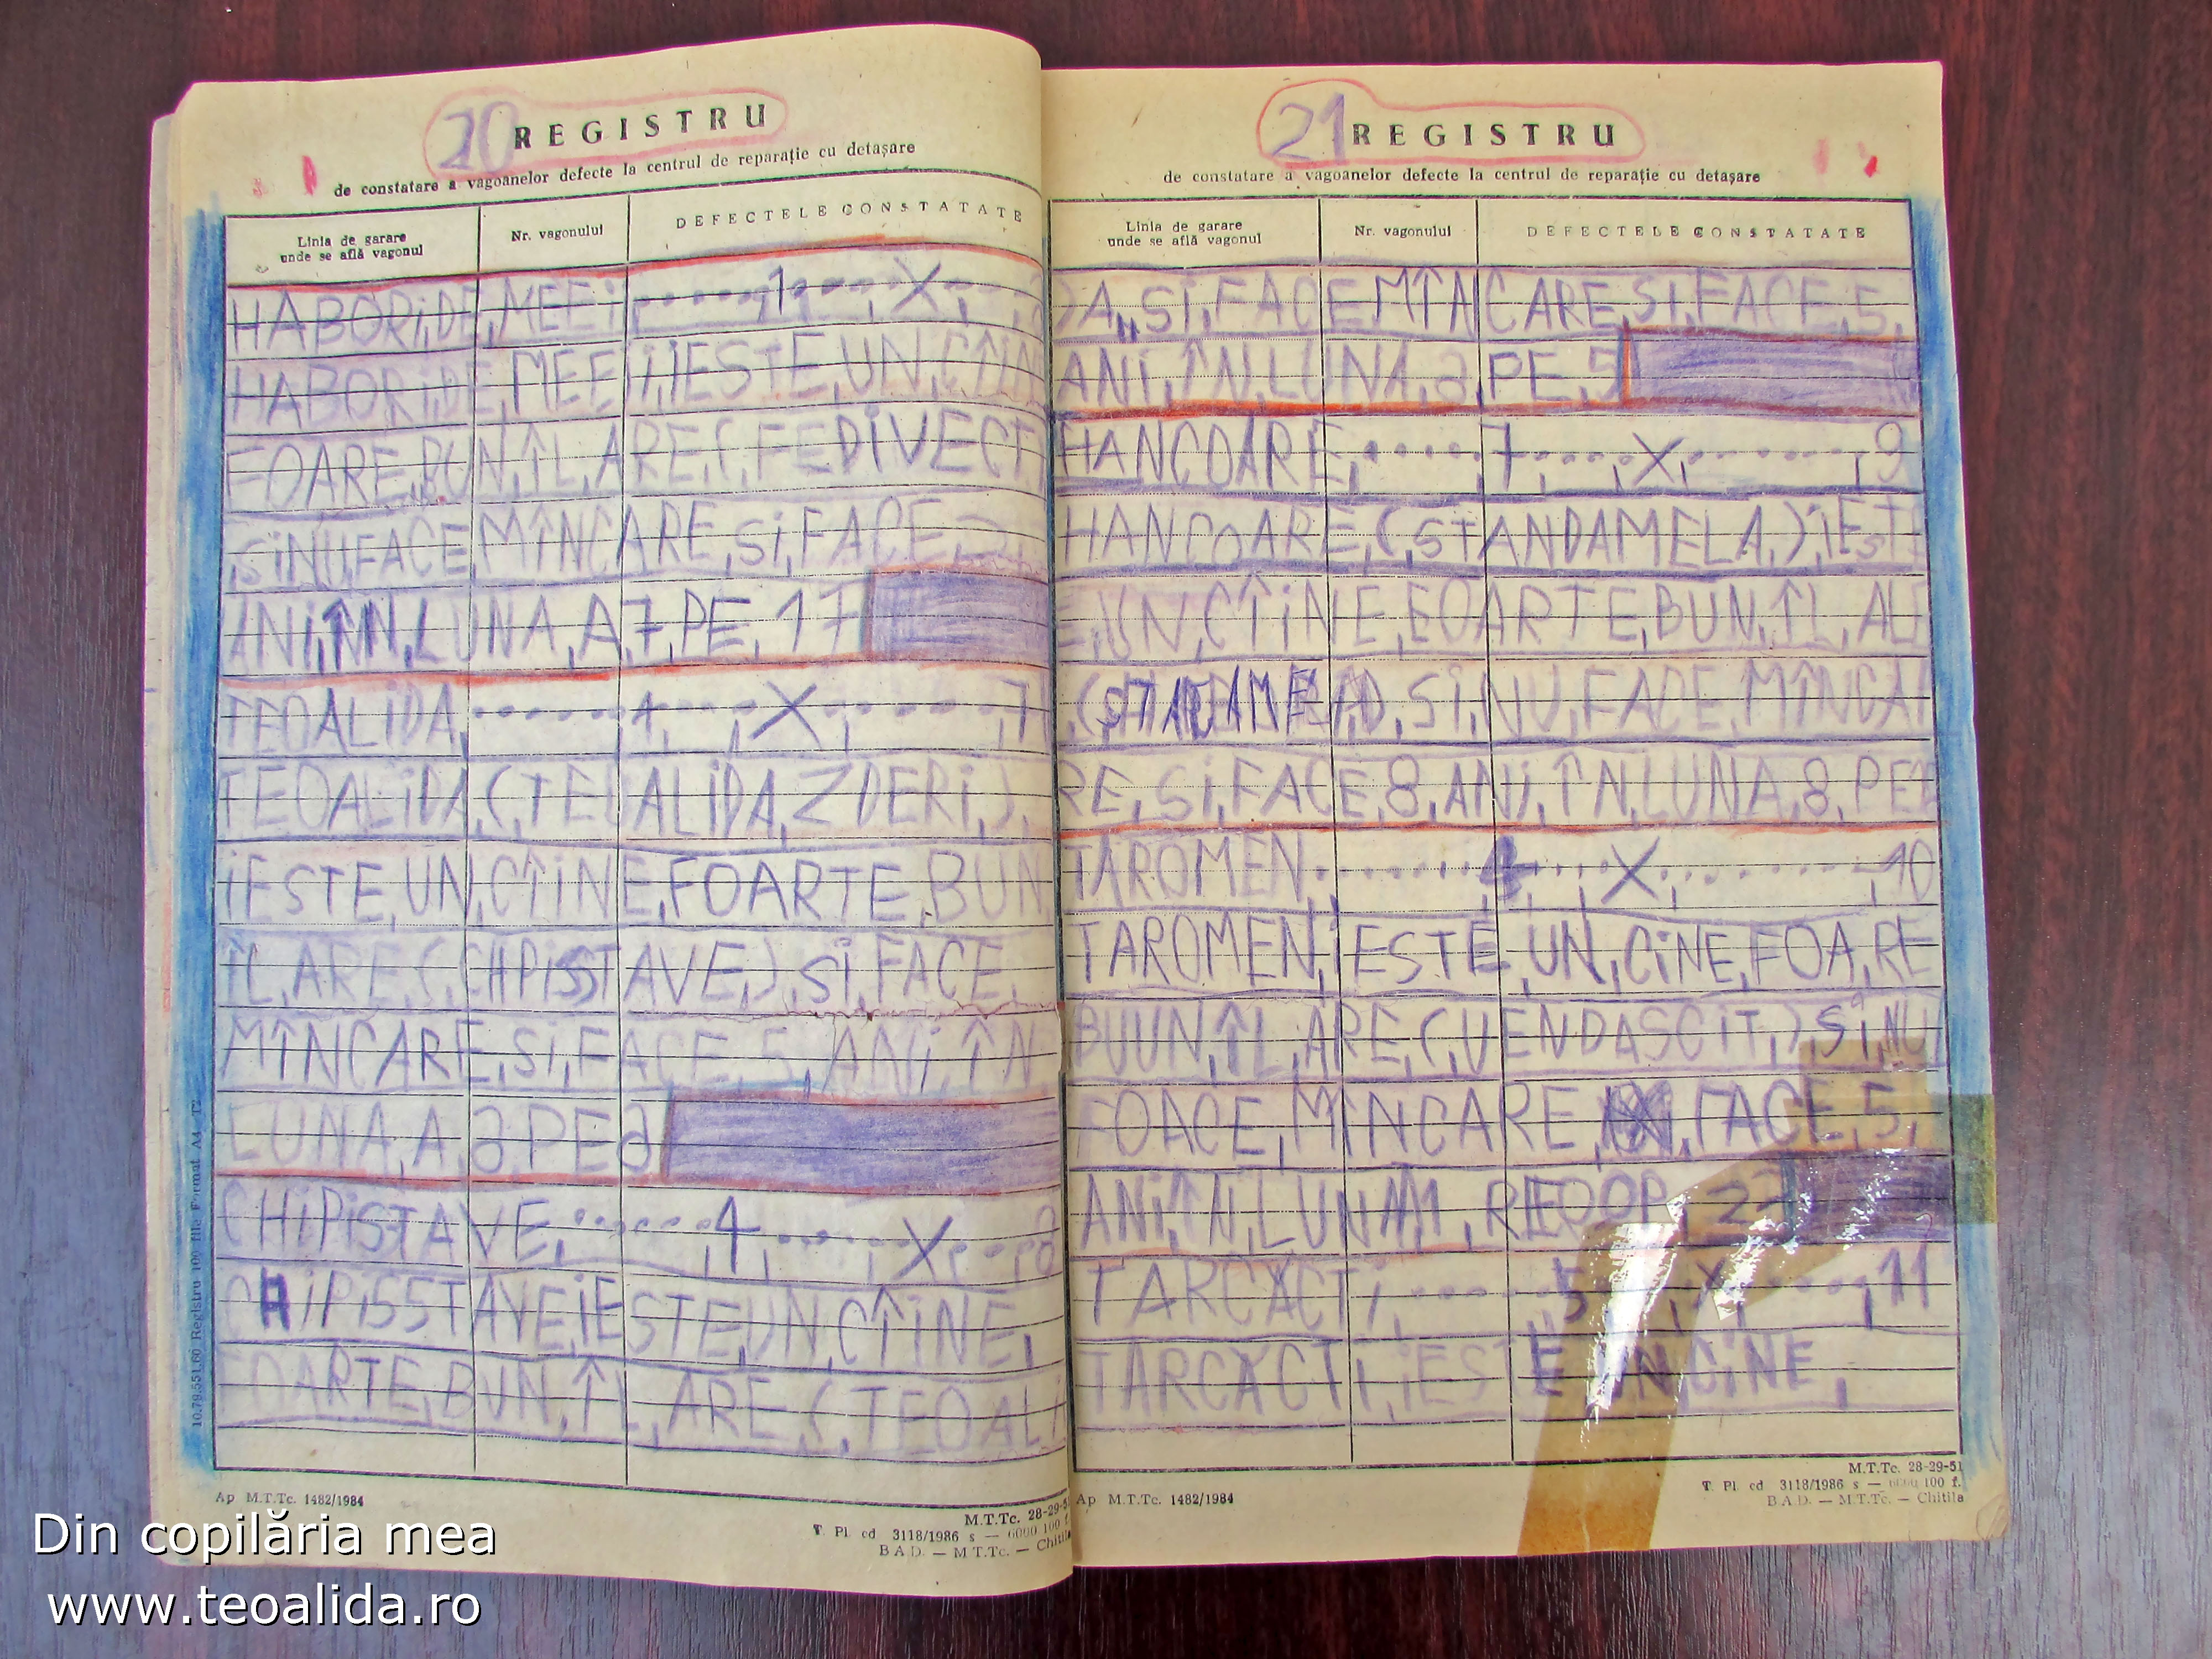 20 REGISTRU
de constatare a vagoanelor defecte la centrul de reparație cu detașare
Linia de garare unde se află vagonul
Nr. vagonului
DEFECTELE CONSTATATE
HABORi,DE,MEEi,........1.......,X,..
HABORi,DE,MEEi,iESTE,UN,CÎiN
FOARE,BUN,ÎL,ARE,(,FEDIVECT
,SiNU,FACE,MÎNCARE,Si,FACE
ANi,ÎN,LUNA,A,7,PE,17
TEOALiDA,..........4,...,X,........,7
TEOALiDA,(,TEUALiDA,ZDERi,),
iESTE,UN,CÎiNE,FOARTE,BUN
ÎL,ARE,(,CHiPiSSTAVE,),Si,FACE,
MÎNCARE,Si,FACE,5,ANi,ÎN
LUNA,A,2,PE2
CHiPiSTAVE,........,4,.....,X,...8
CHiPiSSTAVE,iESTE,UN,CÎiNE,
FOARTE,BUN,ÎL,ARE,(,TEOALi
10.79.551.60 Registru 100 file Format A4 T2
Ap M.T.Tc. 1482/1984
M.T.Tc. 28-29-51
T. Pl. cd 3118/1986 s — 6000 100 f.
B.A.D. — M.T.Tc. — Chitila
21 REGISTRU
de constatare a vagoanelor defecte la centrul de reparație cu detașare
Linia de garare unde se află vagonul
Nr. vagonului
DEFECTELE CONSTATATE
DA,,Si,FACE MÎNCARE,Si,FACE,5,
ANi,ÎN,LUNA,2,PE,5
HANCOARE,......7,.....X,.......,9
HANCOARE,(,STANDAMELA,),iESTE
E,UN,CÎiNE,FOARTE,BUN,ÎL,AL
Si,NU,FACE,MÎNCA
RE,Si,FACE,8,ANi,ÎN,LUNA,8,PE
TAROMEN,..........,X,..........,10
TAROMEN,iESTE,UN,CiNE,FOA,RE
BUUN,ÎL,ARE,(,UENDASCiT,),Si,NU
FOACE,MÎNCARE,FACE,5,
ANi,ÎN,LUNA,11, 27
TARCACTi,.......5 ,X,......,11
TARCACTi,iESTE UN,CiNE,
Ap M.T.Tc. 1482/1984
M.T.Tc. 28-29-51
T. Pl. cd 3118/1986 s — 6000 100 f.
B.A.D. — M.T.Tc. — Chitila
Din copilăria mea
www.teoalida.ro